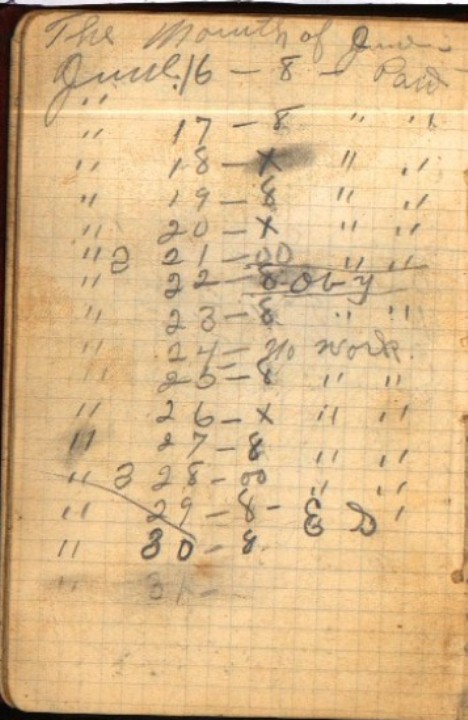 The Month of June
June 16 - 8 - Paid
" 17 - 8 " "
" 18 - X " "
" 19 - 8 " "
" 20 - X " "
" 2 21 - 00 " "
" 22 - 8
" 23 - 8 " "
" 24 - no work.
" 25 - 8 " "
" 26 - X " "
" 27 - 8 " "
" 3 28 - 00 " "
" 29 - 8 -
" 30 - 8
" 31 -